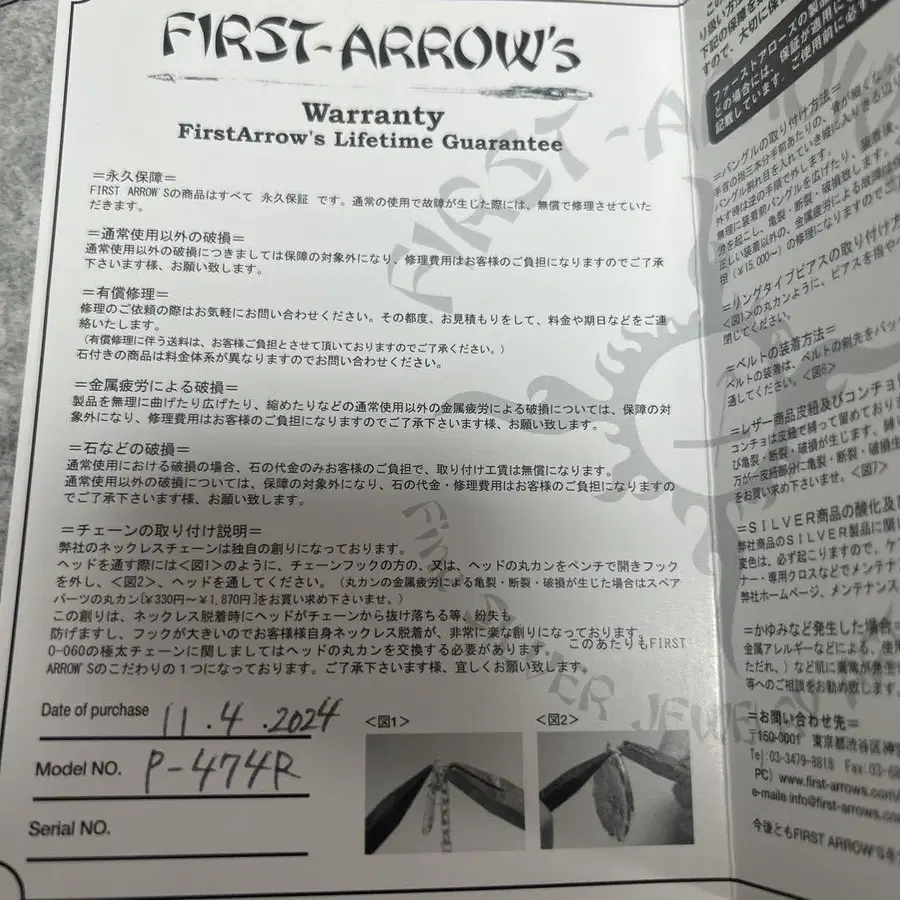 FIRST-ARROW's
Warranty
FirstArrow's Lifetime Guarantee
＝永久保障＝
FIRST ARROW'Sの商品はすべて 永久保証 です。通常の使用で故障が生じた際には、無償で修理させていた
だきます。
＝通常使用以外の破損＝
通常使用以外の破損につきましては保障の対象外になり、修理費用はお客様のご負担になりますのでご了承
下さいます様、お願い致します。
＝有償修理＝
修理のご依頼の際はお気軽にお問い合わせください。その都度、お見積もりをして、料金や期日などをご連
絡いたします。
(有償修理に伴う送料は、お客様ご負担とさせて頂いておりますのでご了承ください。)
石付きの商品は料金体系が異なりますのでお問い合わせください。
＝金属疲労による破損＝
製品を無理に曲げたり広げたり、縮めたりなどの通常使用以外の金属疲労による破損については、保障の対
象外になり、修理費用はお客様のご負担になりますのでご了承下さいます様、お願い致します。
＝石などの破損＝
通常使用における破損の場合、石の代金のみお客様のご負担で、取り付け工賃は無償になります。
通常使用以外の破損については、保障の対象外になり、石の代金・修理費用はお客様のご負担になりますの
でご了承下さいます様、お願い致します。
＝チェーンの取り付け説明＝
弊社のネックレスチェーンは独自の創りになっております。
ヘッドを通す際には<図1>のように、チェーンフックの方の、又は、ヘッドの丸カンをペンチで開きフック
を外し、<図2>、ヘッドを通してください。（丸カンの金属疲労による亀裂・断裂・破損が生じた場合はスペア
パーツの丸カン[¥330円～¥1,870円]をお買い求め下さいませ。）
この創りは、ネックレス脱着時にヘッドがチェーンから抜け落ちる等、紛失も
防げますし、フックが大きいのでお客様様自身ネックレス脱着が、非常に楽な創りになっております。
O-060の極太チェーンに関しましてはヘッドの丸カンを交換する必要があります。 このあたりもFIRST
ARROW'Sのこだわりの1つになっております。ご了承下さいます様、宜しくお願い致します。
Date of purchase 11.4.2024
Model NO. P-474R
Serial NO.
<図1>
<図2>
ファーストアローズの製品
どの場合には、保証が適用に
記載しています。ご使用前に必ず
＝バングルの取り付け方法＝
外す時は逆の手順で外します。
担（¥15,000～）の修理になりますのでご
＝リングタイプピアスの取り付け方
<図1>の丸カンように、ピアスを指や
閉じてください。
＝ベルトの装着方法＝
ベルトの装着は、ベルトの剣先をバッ
通してください。<図6>
＝レザー商品皮紐及びコンチョ
コンチョは皮紐で縛って留めておりま
び亀裂・断裂・破損が生じます、縛
万が一皮紐部分に亀裂・断裂・破損
をお買い求め下さいませ。<図7>
＝SILVER商品の酸化及び
弊社商品のSILVER製品に関し
変色は、必ず起こりますので、ケ
ナー・専用クロスなどでメンテナ
弊社ホームページ、メンテナンス
＝かゆみなど発生した場合＝
金属アレルギーなどによる、使用
ただれ、）など肌に異常が発生
等へのご相談をお勧め致します。
＝お問い合わせ先＝
〒150-0001 東京都渋谷区神宮
Tel:03-3479-8818 Fax:03-6
PC) www.first-arrows.com
e-maile info@first-arrows.com
今後ともFIRST ARROW'Sを